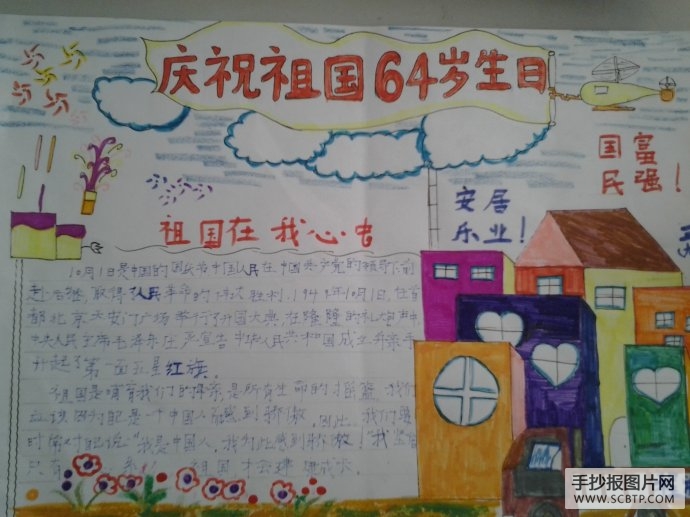 庆祝祖国64岁生日
国富
民强！
安居
乐业！
祖国在我心中
10月1日是中国的国庆节中国人民在中国共产党的领导下前
赴后继，取得人民革命的伟大胜利。1949年10月1日，在首
都北京天安门广场举行了开国大典，在隆隆的礼炮声中，
中央人民主席毛泽东庄严宣告中华人民共和国成立并亲手
升起了第一面五星红旗。
祖国是哺育我们的母亲是所有生命的摇篮，我们
应该因为自己是一个中国人而感到骄傲。因此，我们要
时常对自己说"我是中国人，我为此感到骄傲！"我坚信
只有 祖国
手抄报图片网
WWW.SCBTP.COM